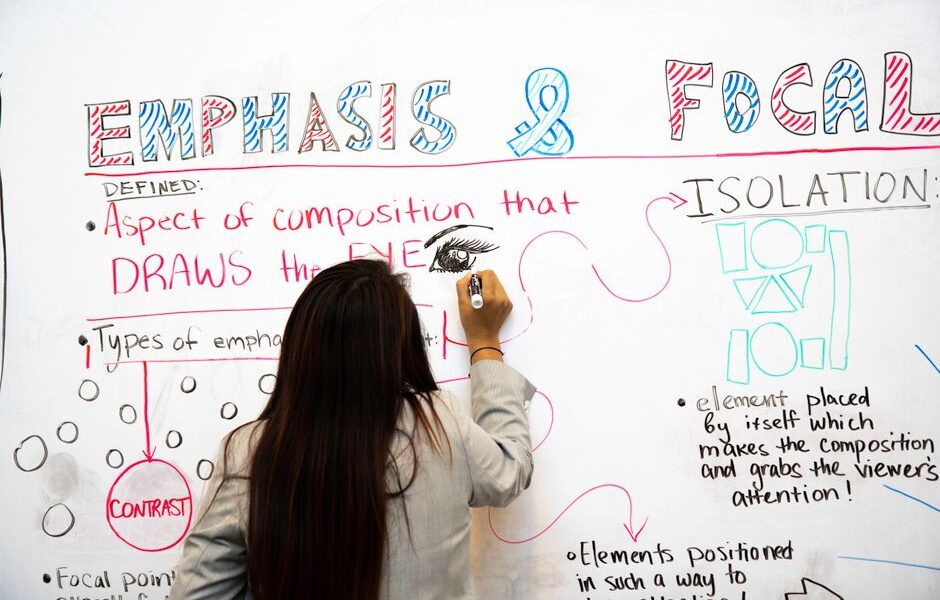 EMPHASIS & FOCAL
DEFINED:
• Aspect of composition that
DRAWS the EYE
• Types of
CONTRAST
• Focal point
ISOLATION:
• element placed
by itself which
makes the composition
and grabs the viewer's
attention!
Elements positioned
in such a way to